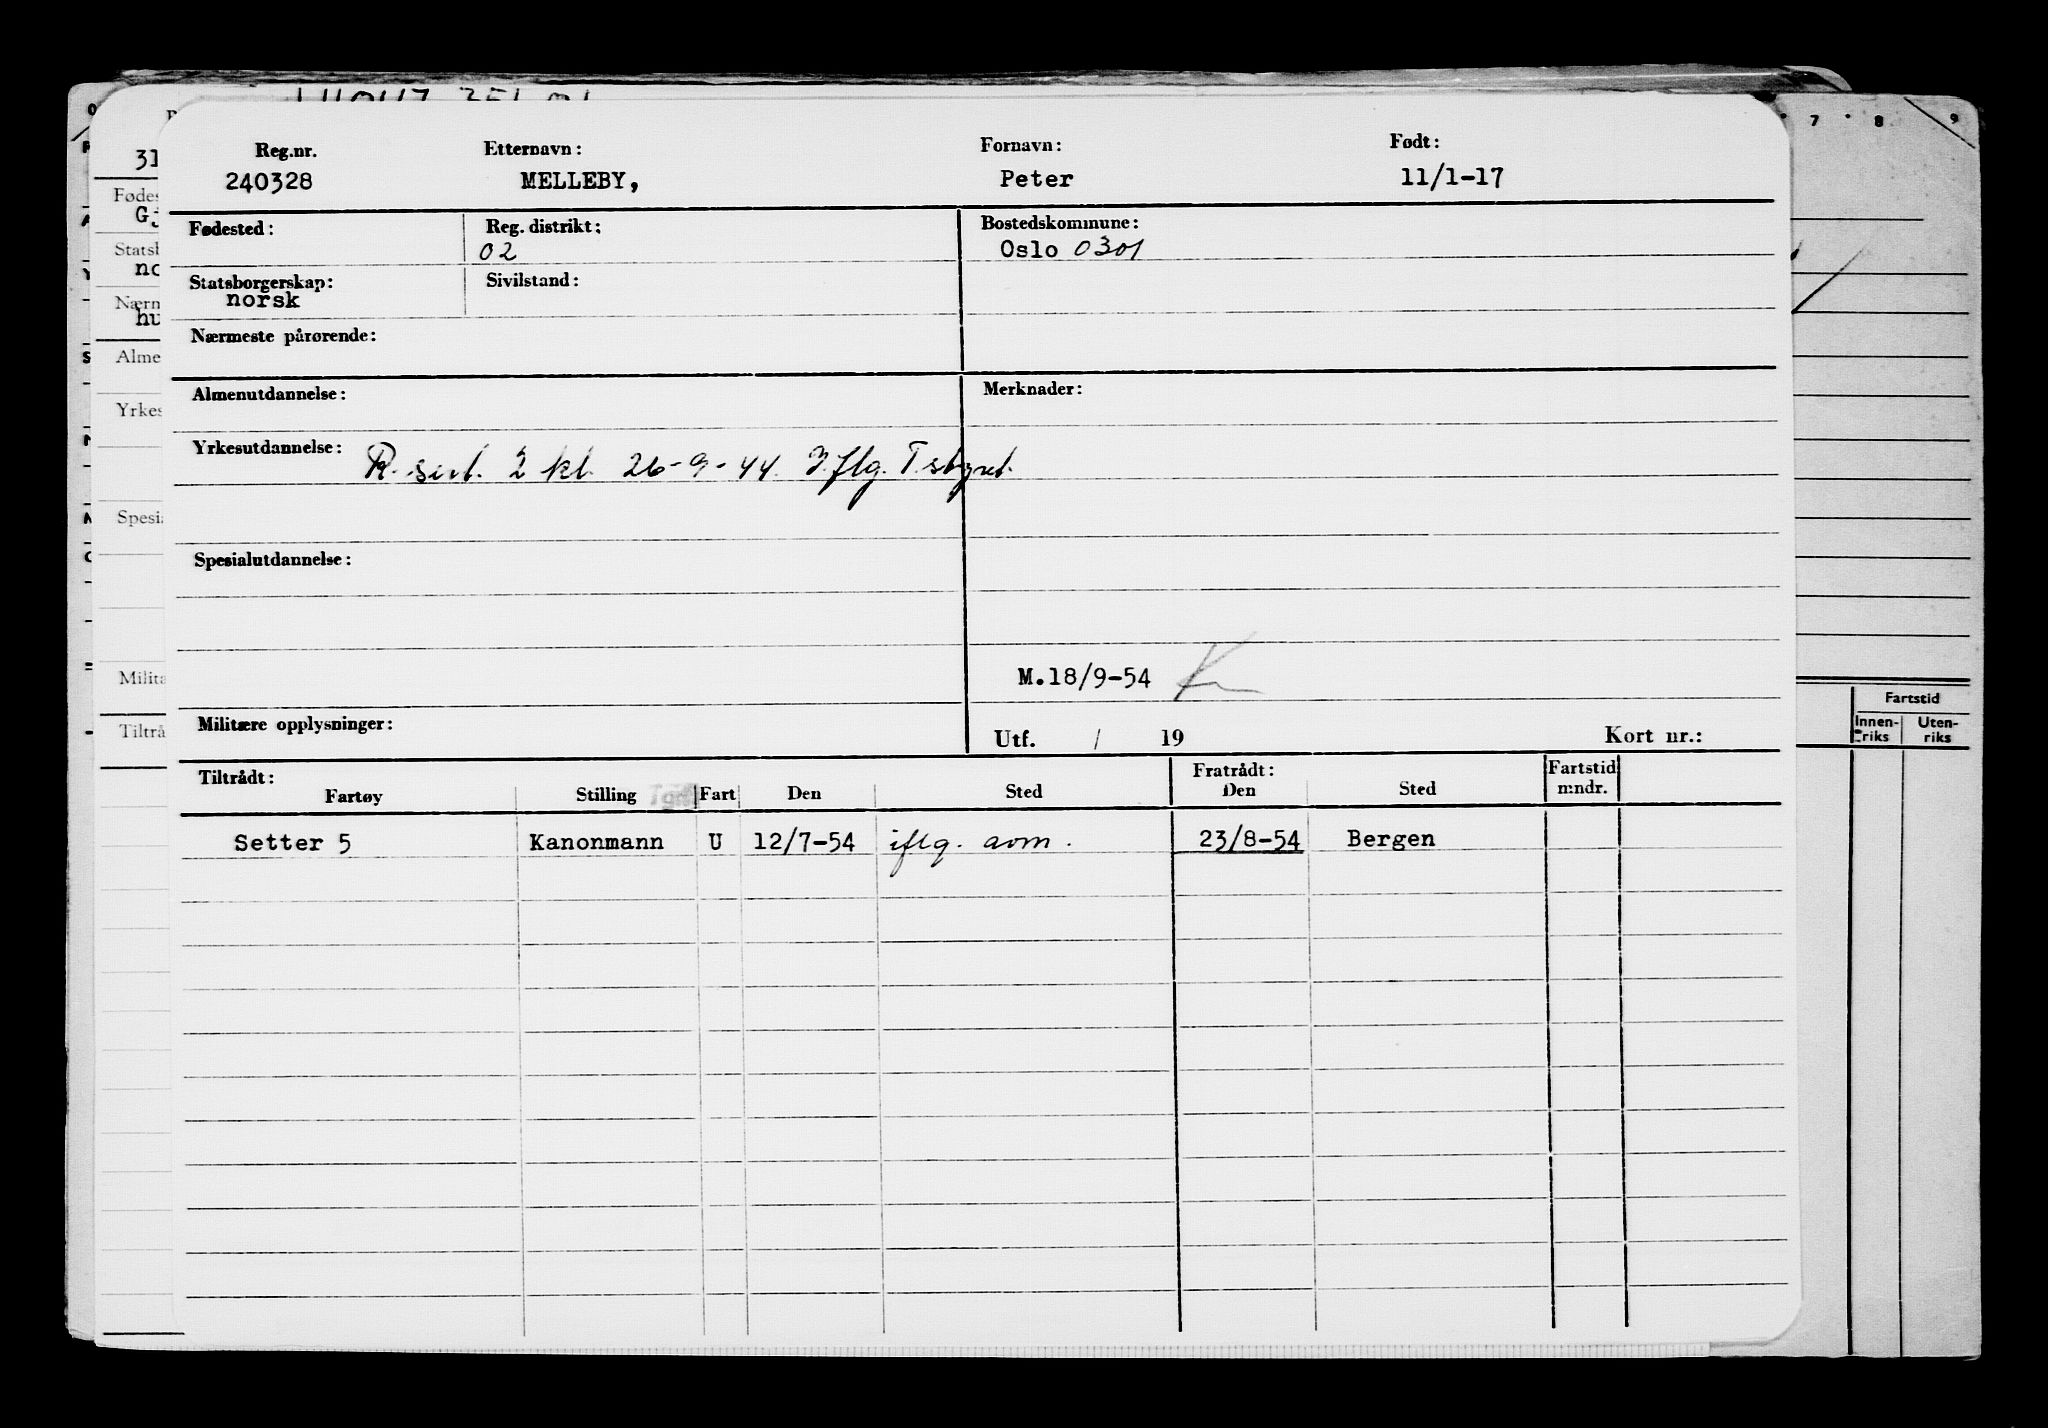 Reg.nr. Etternavn: Fornavn: Født:
240328 MELLEBY, Peter 11/1-17
Fødested: Reg. distrikt: Bostedskommune:
02 Oslo 0301
Statsborgerskap: Sivilstand:
norsk
Nærmeste pårørende:
Almenutdannelse: Merknader:
Yrkesutdannelse: R. sert. 2 kl. 26-9-44. Iflg. T.styret.
Spesialutdannelse:
M.18/9-54
Militære opplysninger: Utf. / 19 Kort nr.:
Tiltrådt: Fratrådt: Fartstid
Fartøy Stilling Fart Den Sted Den Sted mndr.
Setter 5 Kanonmann U 12/7-54 iflg. avm. 23/8-54 Bergen
7 8 9
Fartstid
Innen- Uten-
riks riks